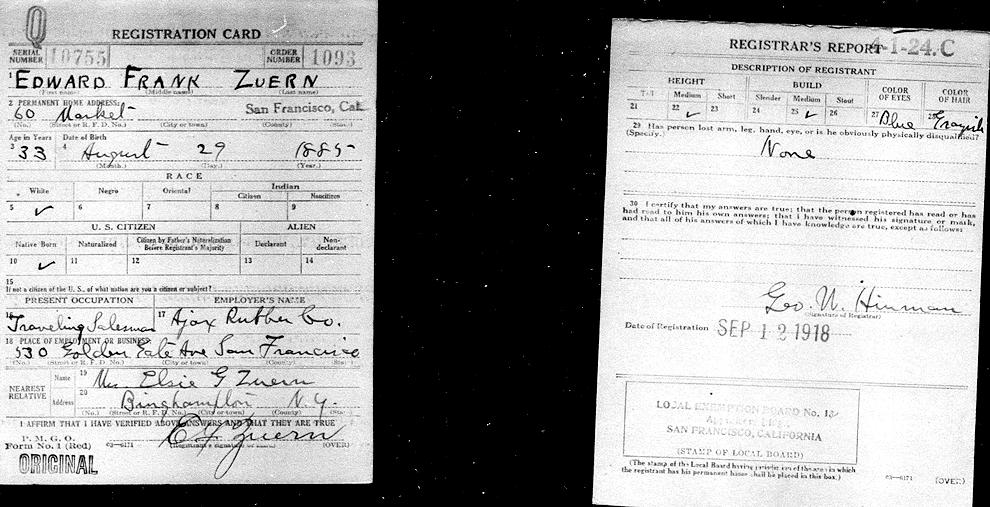 Q
REGISTRATION CARD
SERIAL NUMBER 10755 ORDER NUMBER 1093
1 EDWARD FRANK ZUERN
(First name) (Middle name) (Last name)
2 PERMANENT HOME ADDRESS:
60 Market San Francisco, Cal.
(No.) (Street or R. F. D. No.) (City or town) (County) (State)
Age in Years Date of Birth
3 33 4 August 29 1885
(Month.) (Day.) (Year.)
RACE
White Negro Oriental Indian
Citizen Noncitizen
5 ✓ 6 7 8 9
U. S. CITIZEN ALIEN
Native Born Naturalized Citizen by Father's Naturalization Before Registrant's Majority Declarant Non-declarant
10 ✓ 11 12 13 14
15
If not a citizen of the U. S., of what nation are you a citizen or subject?
PRESENT OCCUPATION EMPLOYER'S NAME
16 Traveling Salesman 17 Ajax Rubber Co.
18 PLACE OF EMPLOYMENT OR BUSINESS:
530 Golden Gate Ave San Francisco
(No.) (Street or R. F. D. No.) (City or town) (County) (State)
NEAREST RELATIVE Name 19 Mrs Elsie G Zuern
Address 20 Binghampton N.Y.
(No.) (Street or R. F. D. No.) (City or town) (County) (State)
I AFFIRM THAT I HAVE VERIFIED ABOVE ANSWERS AND THAT THEY ARE TRUE
P. M. G. O.
Form No. 1 (Red) 03—6171 E F Zuern (OVER)
(Registrant's signature or mark)
ORIGINAL
REGISTRAR'S REPORT 4-1-24. C
DESCRIPTION OF REGISTRANT
HEIGHT BUILD COLOR OF EYES COLOR OF HAIR
Tall Medium Short Slender Medium Stout
21 22 ✓ 23 24 25 ✓ 26 27 Blue 28 Grayish
29 Has person lost arm, leg, hand, eye, or is he obviously physically disqualified?
(Specify.)
None
30 I certify that my answers are true; that the person registered has read or has
had read to him his own answers; that I have witnessed his signature or mark,
and that all of his answers of which I have knowledge are true, except as follows:
Geo. W. Hinman
(Signature of Registrar)
Date of Registration SEP 12 1918
LOCAL EXEMPTION BOARD No.
SAN FRANCISCO, CALIFORNIA
(STAMP OF LOCAL BOARD)
(The stamp of the Local Board having jurisdiction of the area in which
the registrant has his permanent home shall be placed in this box.)
03—6171 (OVER)